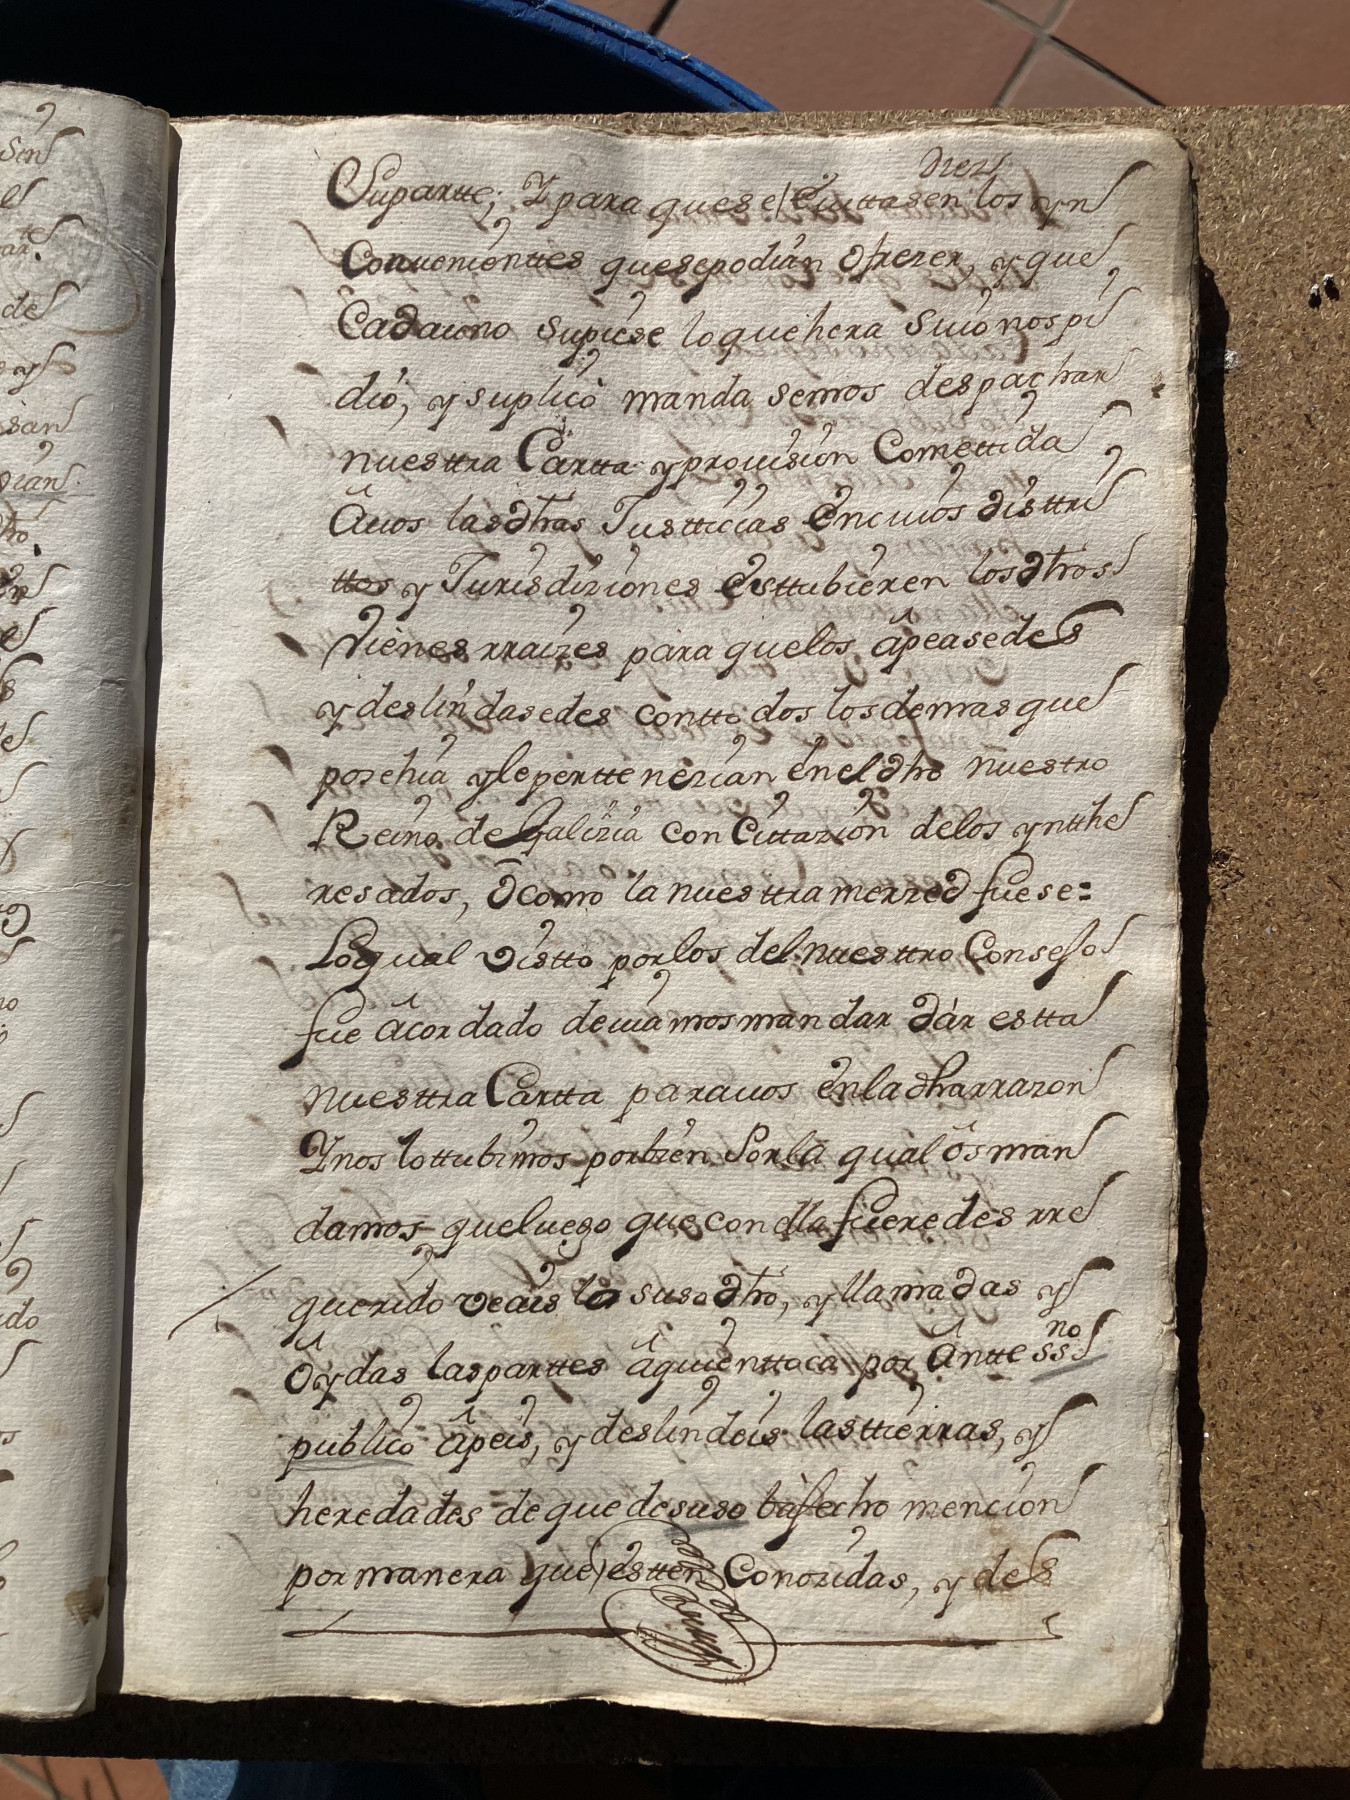 Diez
Supartte; Y para que se evittasen los yn
Conuenienttes que se podian ofrezer, y que
Cada uno supiese lo que hera suio nos pi
dió, y suplicò mandasemos despachar
nuesttra Cartta y prouision Comettida
â uos las dhas Justticias en cuios disttri
ttos y Jurisdiziones esttubieren los dhos
vienes rraizes para que los âpeasedes
y deslindasedes con ttodos los demas que
posehia y le perttenezian en el dho nuestro
Reino de Galizia con Cittazion de los yntthe
resados, o como la nuesttra merzed fuese=
Lo qual vistto por los del nuesttro Consejo
fue âcordado deuiamos mandar dár estta
nuesttra Cartta para uos en la dha rrazon
Y nos lo ttubimos por bien Por la qual ôs man
damos que luego que con ella fueredes rre
querido veais lo susodho, y llamadas y
ôydas las parttes â quien ttoca por ântte ssno
publico âpeis, y deslindeis las ttierras, y
heredades de que de suso ba fecho mencion
por manera que estten Conozidas, y des